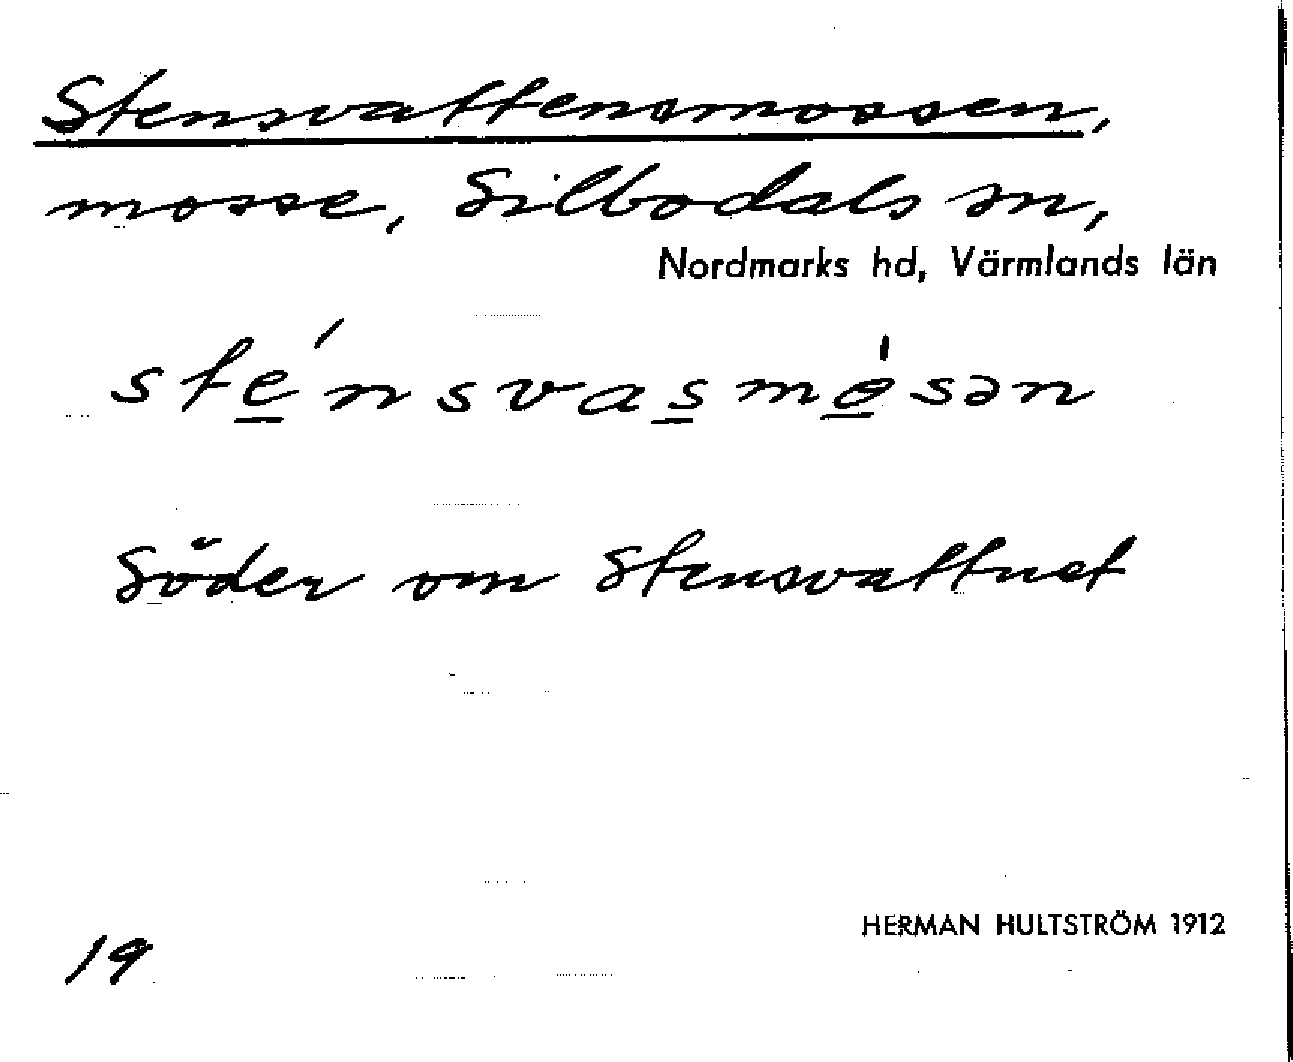 Stensvattensmossen,
mosse, Silbodals sn,
Nordmarks hd, Värmlands län
sté̲nsvas̲mo̲̍sən
Söder om Stensvattnet
HERMAN HULTSTRÖM 1912
19